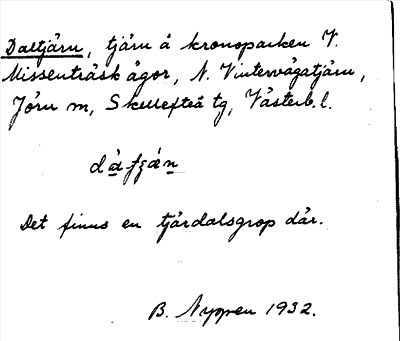 Daltjärn, tjärn å kronoparken V.
Missenträsk ägor, N. Vintervägatjärn,
Jörn sn, Skellefteå tg, Västerb.l.
Det finns en tjärdalsgrop där.
B. Nyppen 1932.